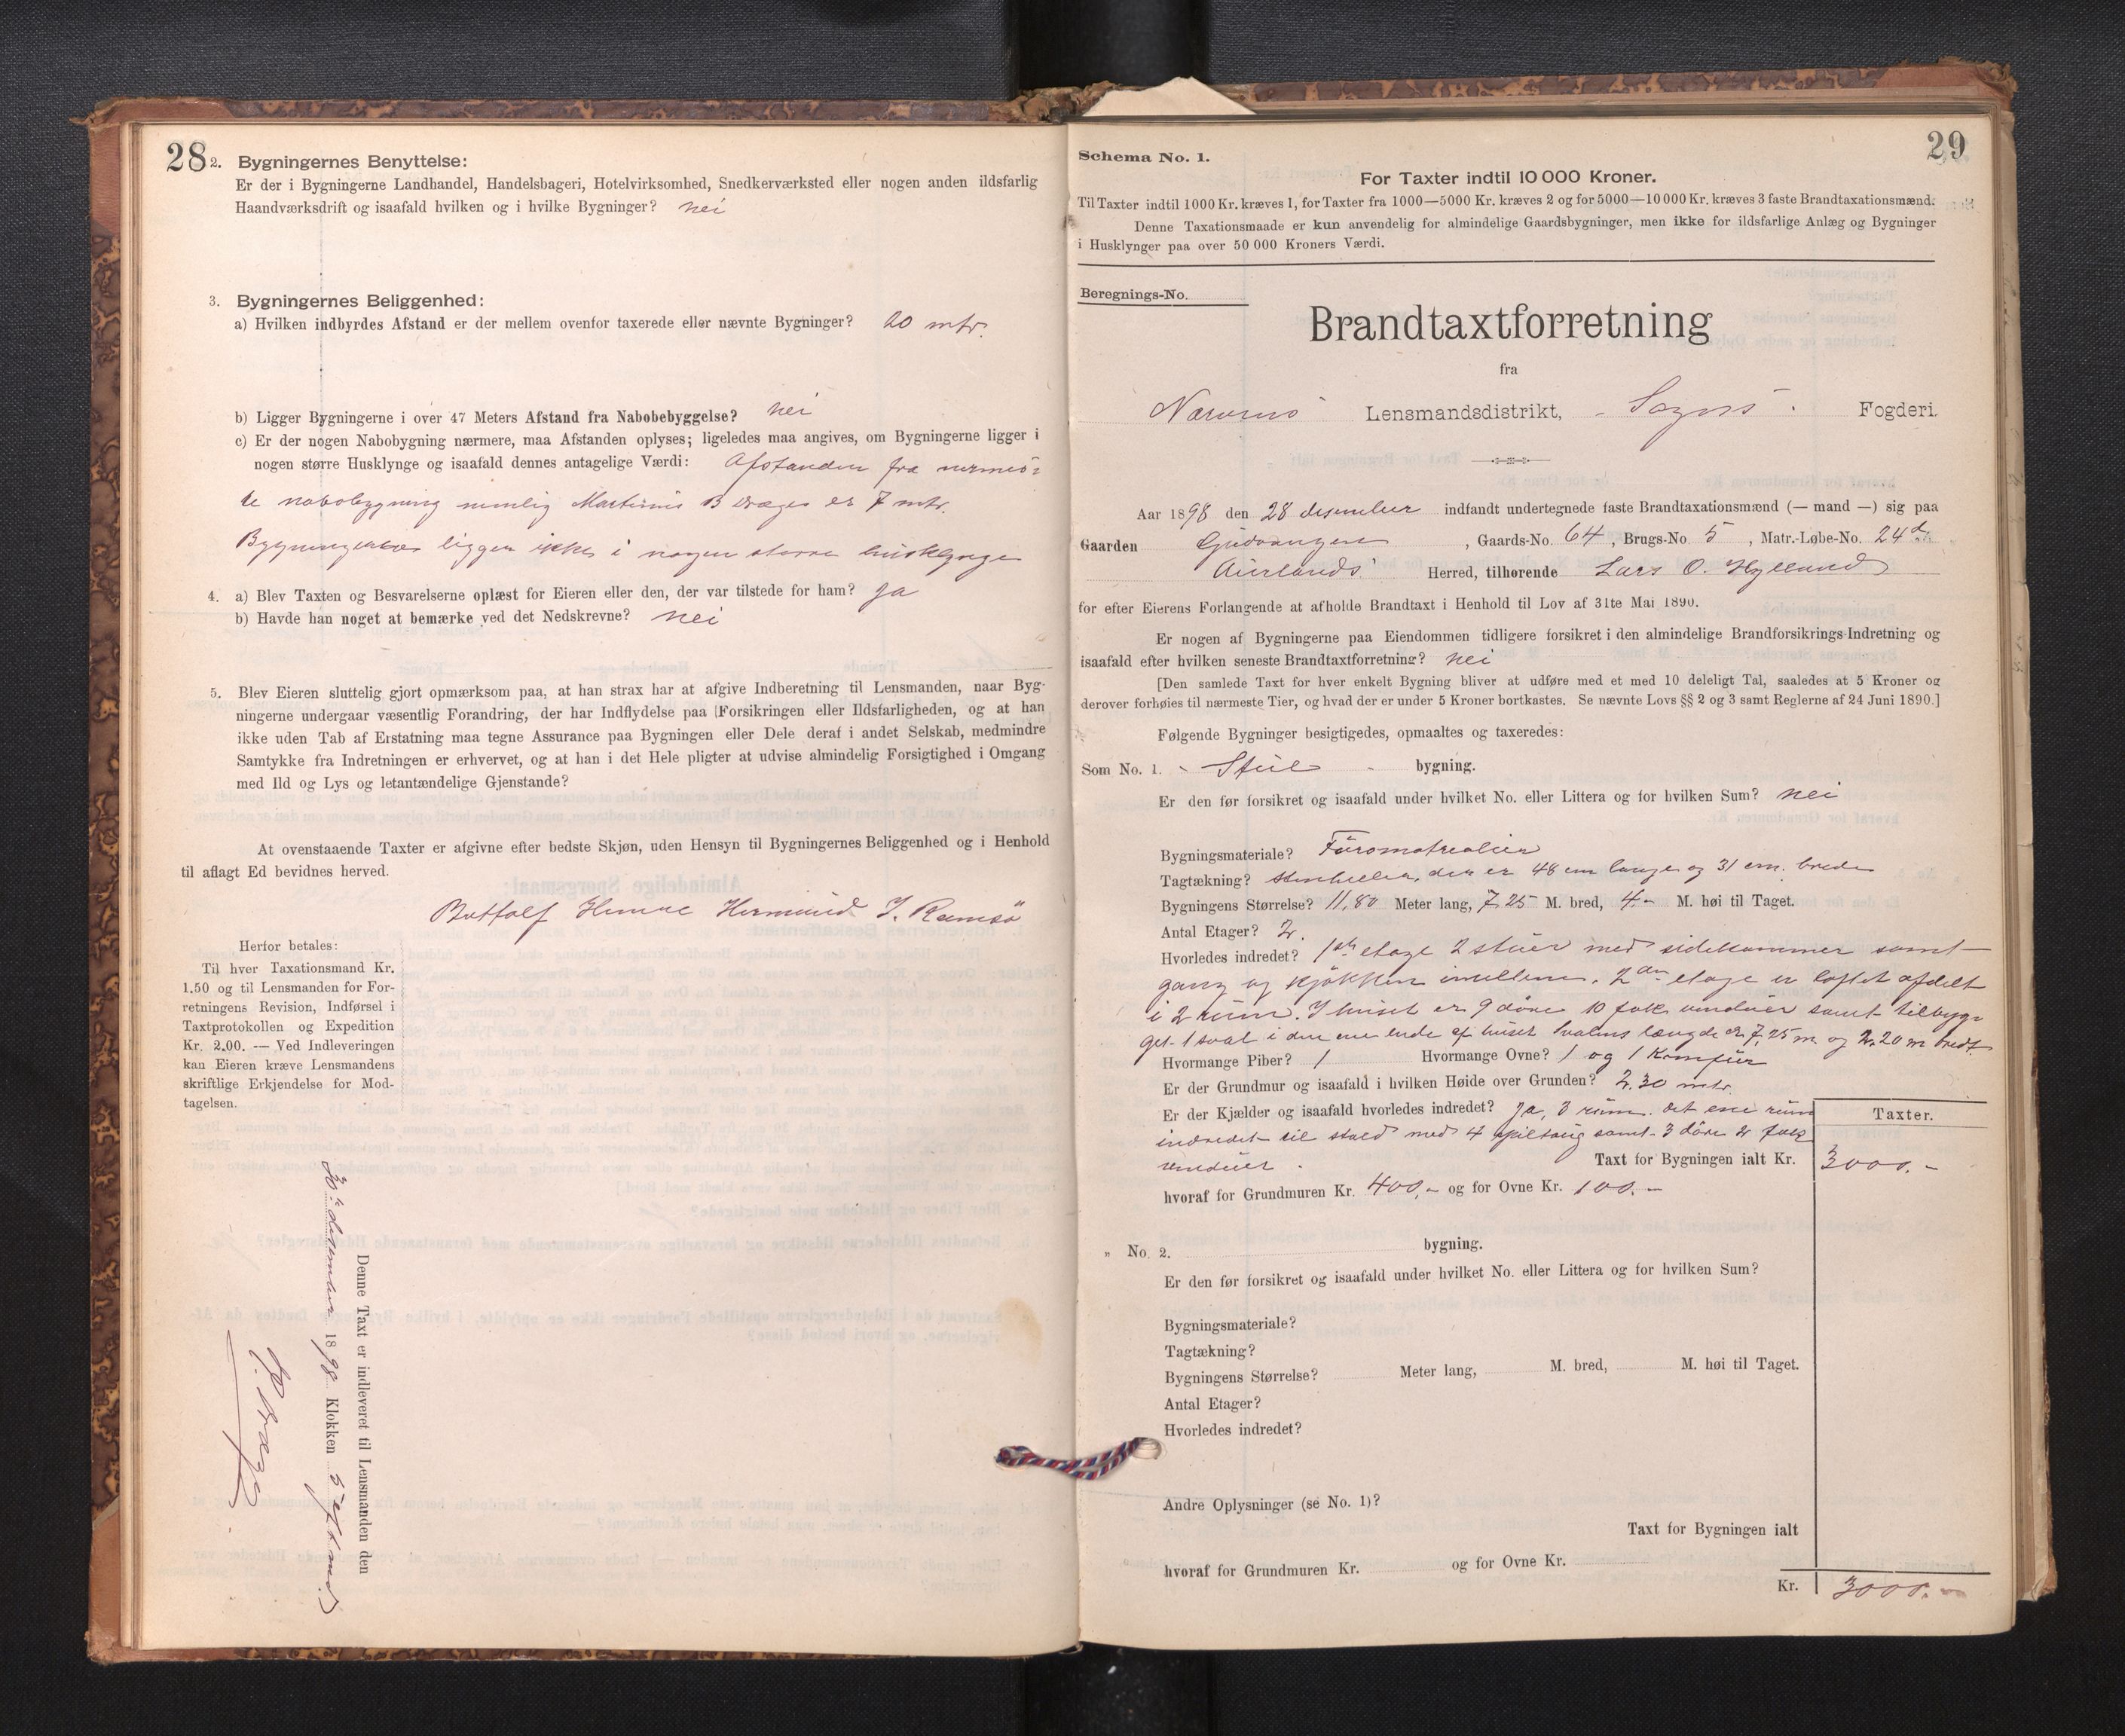 28
2. Bygningernes Benyttelse:
Er der i Bygningerne Landhandel, Handelsbageri, Hotelvirksomhed, Snedkerværksted eller nogen anden ildsfarlig
Haandværksdrift og isaafald hvilken og i hvilke Bygninger? nei
3. Bygningernes Beliggenhed:
a) Hvilken indbyrdes Afstand er der mellem ovenfor taxerede eller nævnte Bygninger? 20 mtr.
b) Ligger Bygningerne i over 47 Meters Afstand fra Nabobebyggelse? nei
c) Er der nogen Nabobygning nærmere, maa Afstanden oplyses; ligeledes maa angives, om Bygningerne ligger i
nogen større Husklynge og isaafald dennes antagelige Værdi: Afstanden fra nermes-
te nabobygning nemlig Martinus B Dræges er 7 mtr.
Bygningerne ligger ikke i nogen større husklynge
4. a) Blev Taxten og Besvarelserne oplæst for Eieren eller den, der var tilstede for ham? ja
b) Havde han noget at bemærke ved det Nedskrevne? nei
5. Blev Eieren sluttelig gjort opmærksom paa, at han strax har at afgive Indberetning til Lensmanden, naar Byg-
ningerne undergaar væsentlig Forandring, der har Indflydelse paa Forsikringen eller Ildsfarligheden, og at han
ikke uden Tab af Erstatning maa tegne Assurance paa Bygningen eller Dele deraf i andet Selskab, medmindre
Samtykke fra Indretningen er erhvervet, og at han i det Hele pligter at udvise almindelig Forsigtighed i Omgang
med Ild og Lys og letantændelige Gjenstande?
At ovenstaaende Taxter er afgivne efter bedste Skjøn, uden Hensyn til Bygningernes Beliggenhed og i Henhold
til aflagt Ed bevidnes herved.
Bottolf Hemre Hermund I. Ramsø
Herfor betales:
Til hver Taxationsmand Kr.
1.50 og til Lensmanden for For-
retningens Revision, Indførsel i
Taxtprotokollen og Expedition
Kr. 2.00. — Ved Indleveringen
kan Eieren kræve Lensmandens
skriftlige Erkjendelse for Mod-
tagelsen.
Denne Taxt er indleveret til Lensmanden den
30te desember 1898 Klokken 5 efterm.
29
Schema No. 1.
For Taxter indtil 10 000 Kroner.
Til Taxter indtil 1000 Kr. kræves 1, for Taxter fra 1000—5000 Kr. kræves 2 og for 5000—10 000 Kr. kræves 3 faste Brandtaxationsmænd.
Denne Taxationsmaade er kun anvendelig for almindelige Gaardsbygninger, men ikke for ildsfarlige Anlæg og Bygninger
i Husklynger paa over 50 000 Kroners Værdi.
Beregnings-No.
Brandtaxtforretning
fra
Nærønes Lensmandsdistrikt, Sogns Fogderi.
Aar 1898 den 28 desember indfandt undertegnede faste Brandtaxationsmænd (— mand —) sig paa
Gaarden Gudvangen, Gaards-No. 64, Brugs-No. 5, Matr.-Løbe-No. 24 d.
Aurlands Herred, tilhørende Lars O. Hylland
for efter Eierens Forlangende at afholde Brandtaxt i Henhold til Lov af 31te Mai 1890.
Er nogen af Bygningerne paa Eiendommen tidligere forsikret i den almindelige Brandforsikrings-Indretning og
isaafald efter hvilken seneste Brandtaxtforretning? nei
[Den samlede Taxt for hver enkelt Bygning bliver at udføre med et med 10 deleligt Tal, saaledes at 5 Kroner og
derover forhøies til nærmeste Tier, og hvad der er under 5 Kroner bortkastes. Se nævnte Lovs §§ 2 og 3 samt Reglerne af 24 Juni 1890.]
Følgende Bygninger besigtigedes, opmaaltes og taxeredes:
Som No. 1. Stue bygning.
Er den før forsikret og isaafald under hvilket No. eller Littera og for hvilken Sum? nei
Bygningsmateriale? Furomatrealier
Tagtækning? stenheller, der er 48 cm lange og 31 cm. brede
Bygningens Størrelse? 11,80 Meter lang, 7,25 M. bred, 4.- M. høi til Taget.
Antal Etager? 2.
Hvorledes indredet? 1ste etage 2 stuer med sidekammer samt
gang og kjøkken imellem. 2den etage er loftet afdelt
i 2 rum. I huset er 9 døre 10 fak vinduer samt tilbyg-
get 1 sval i den ene ende af huset svalens længde er 7,25 m og 2,20 m bredt.
Hvormange Piber? 1 Hvormange Ovne? 1 og 1 Komfur
Er der Grundmur og isaafald i hvilken Høide over Grunden? 2.30 mtr.
Er der Kjælder og isaafald hvorledes indredet? Ja, 3 rum. det ene rum
indredet til stald med 4 spiltoug samt 3 døre 2 fak
vinduer.
Taxter.
Taxt for Bygningen ialt Kr. 3000.-
hvoraf for Grundmuren Kr. 400,- og for Ovne Kr. 100.-
„ No. 2. bygning.
Er den før forsikret og isaafald under hvilket No. eller Littera og for hvilken Sum?
Bygningsmateriale?
Tagtækning?
Bygningens Størrelse? Meter lang, M. bred, M. høi til Taget.
Antal Etager?
Hvorledes indredet?
Andre Oplysninger (se No. 1)?
Taxt for Bygningen ialt
hvoraf for Grundmuren Kr. og for Ovne Kr.
Kr. 3000.-